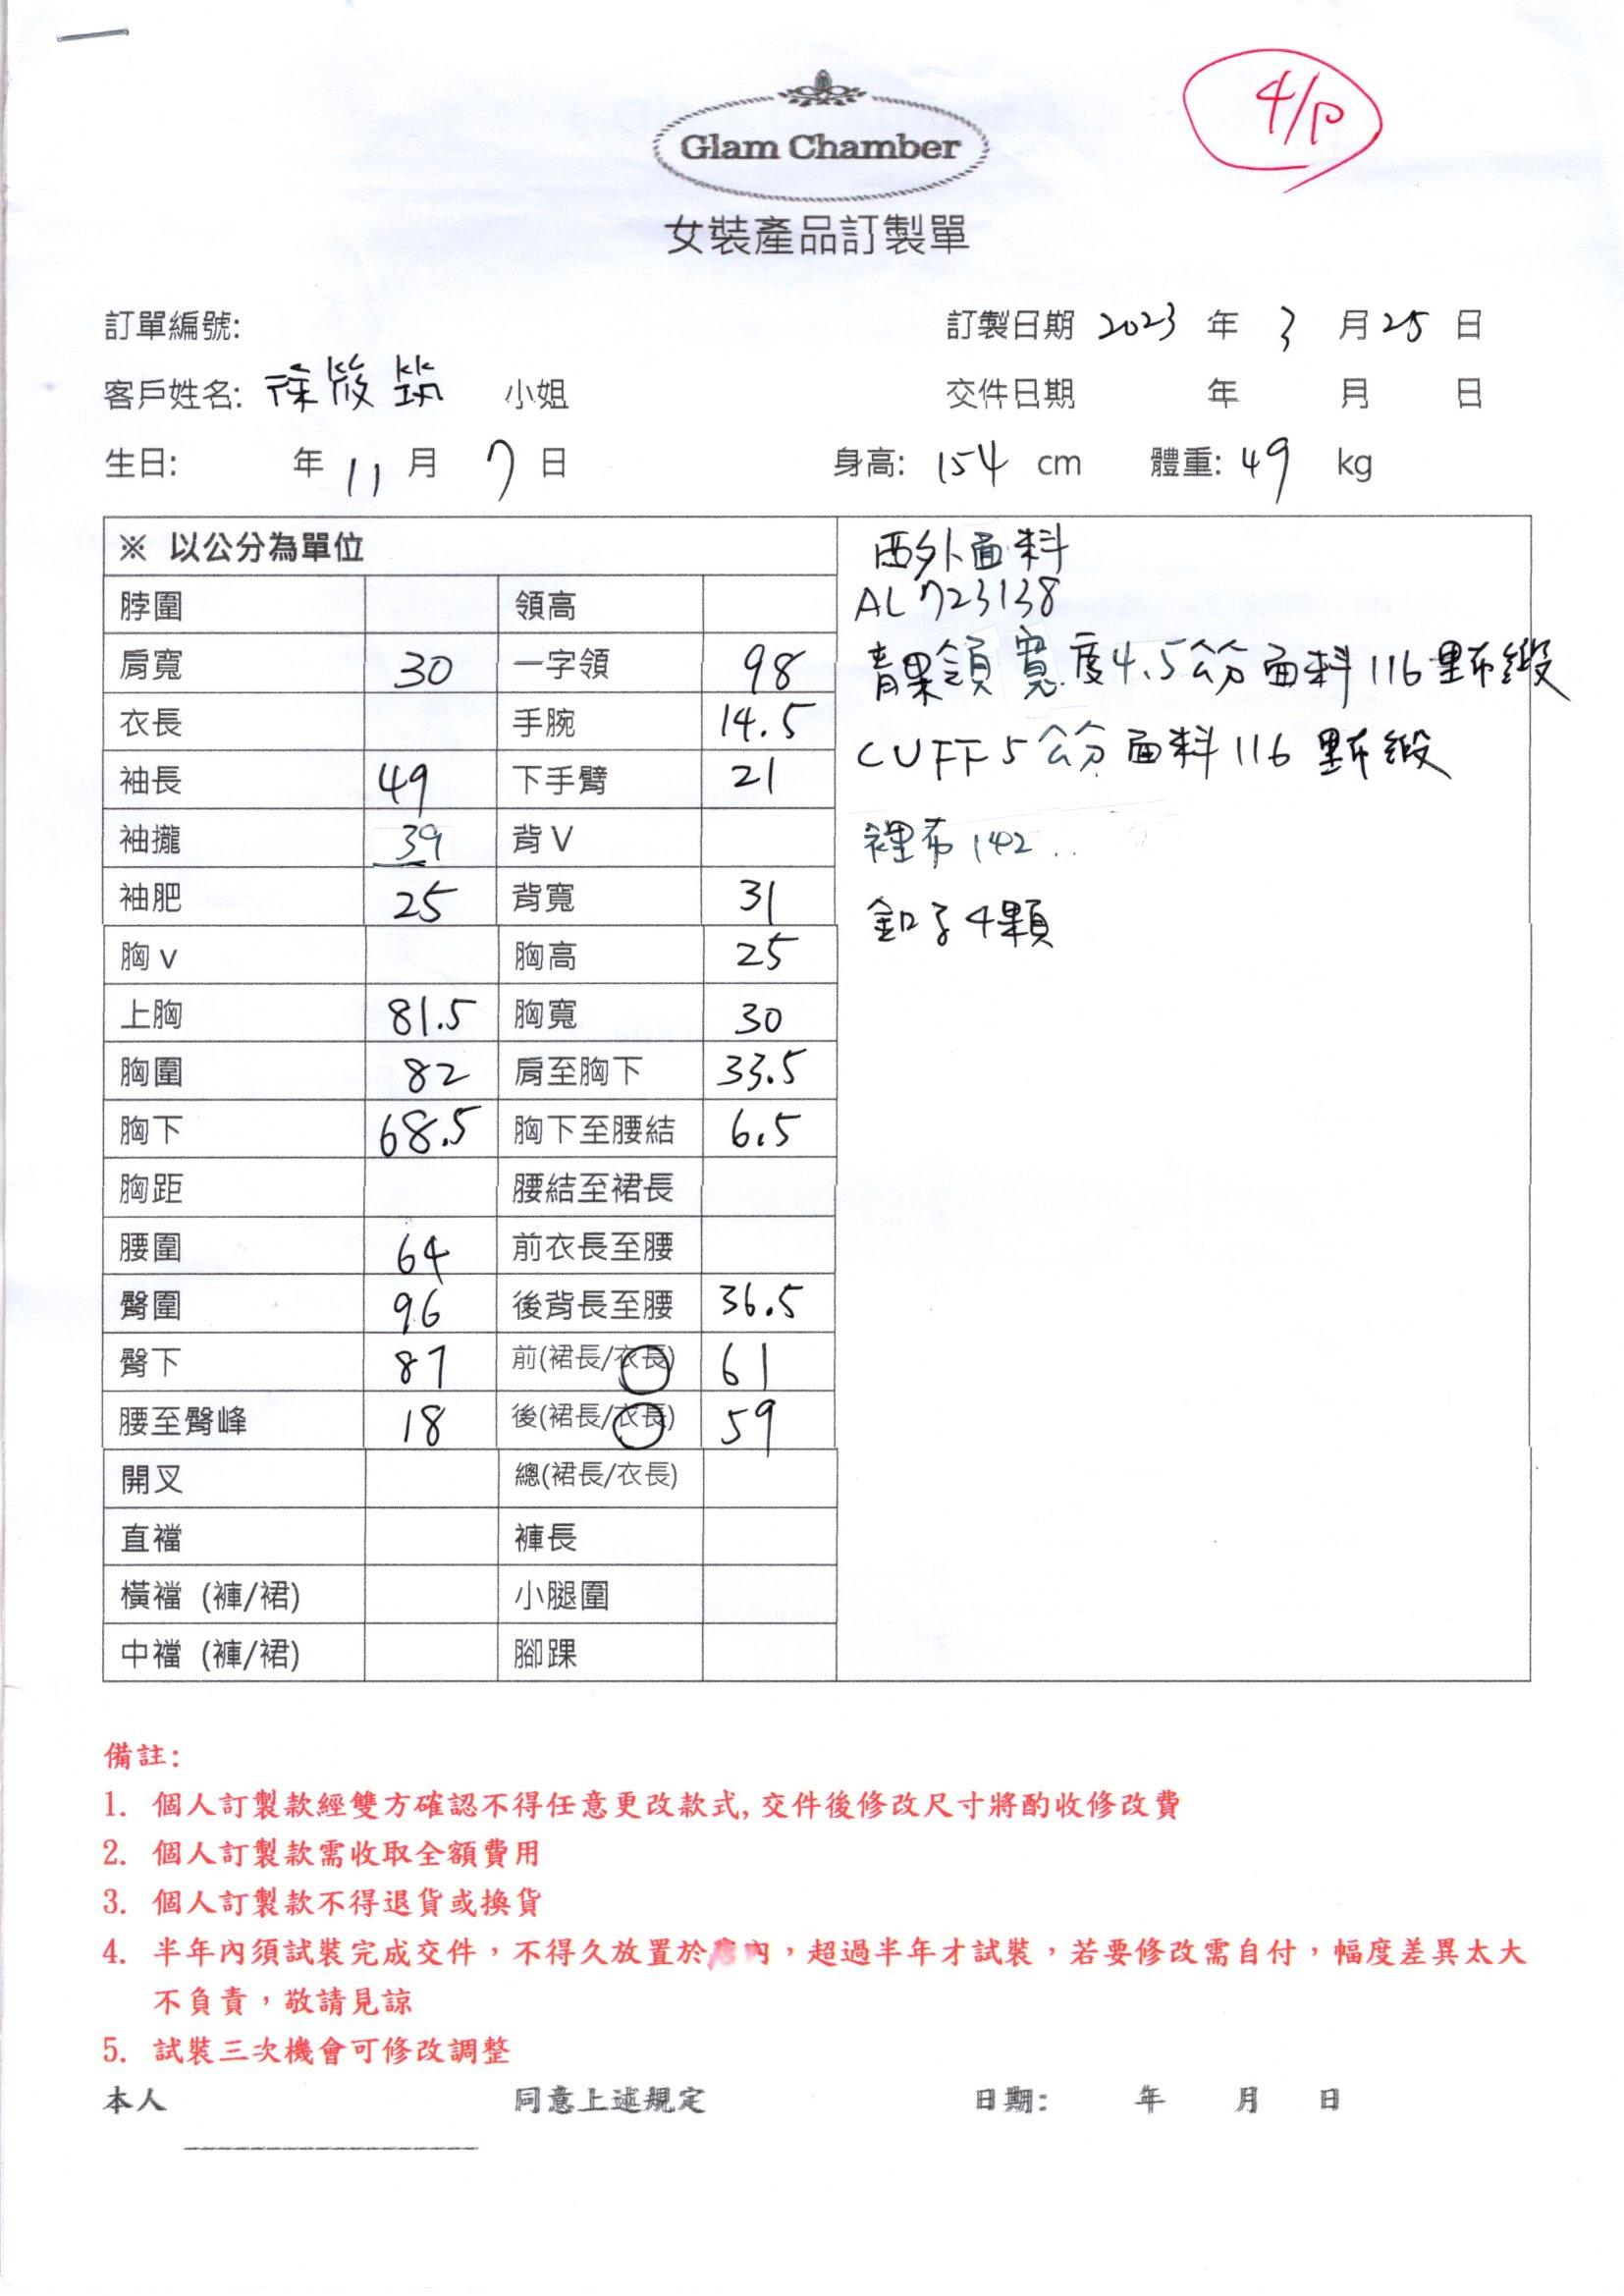 4/10
Glam Chamber
女裝產品訂製單
訂單編號:
訂製日期 2023 年 3 月 25 日
客戶姓名: 徐筱筑 小姐
交件日期 年 月 日
生日: 年 11 月 7 日
身高: 154 cm 體重: 49 kg
※ 以公分為單位
脖圍 領高
肩寬 30 一字領 98
衣長 手腕 14.5
袖長 49 下手臂 21
袖攏 39 背V
袖肥 25 背寬 31
胸v 胸高 25
上胸 81.5 胸寬 30
胸圍 82 肩至胸下 33.5
胸下 68.5 胸下至腰結 6.5
胸距 腰結至裙長
腰圍 64 前衣長至腰
臀圍 96 後背長至腰 36.5
臀下 87 前(裙長/衣長) 61
腰至臀峰 18 後(裙長/衣長) 59
開叉 總(裙長/衣長)
直襠 褲長
橫襠 (褲/裙) 小腿圍
中襠 (褲/裙) 腳踝
西外面料
AL723138
青果領寬度4.5公分面料116黑布緞
CUFF5公分面料116黑布緞
裡布142
釦子4顆
備註:
1. 個人訂製款經雙方確認不得任意更改款式,交件後修改尺寸將酌收修改費
2. 個人訂製款需收取全額費用
3. 個人訂製款不得退貨或換貨
4. 半年內須試裝完成交件，不得久放置於店內，超過半年才試裝，若要修改需自付，幅度差異太大
不負責，敬請見諒
5. 試裝三次機會可修改調整
本人 同意上述規定 日期: 年 月 日